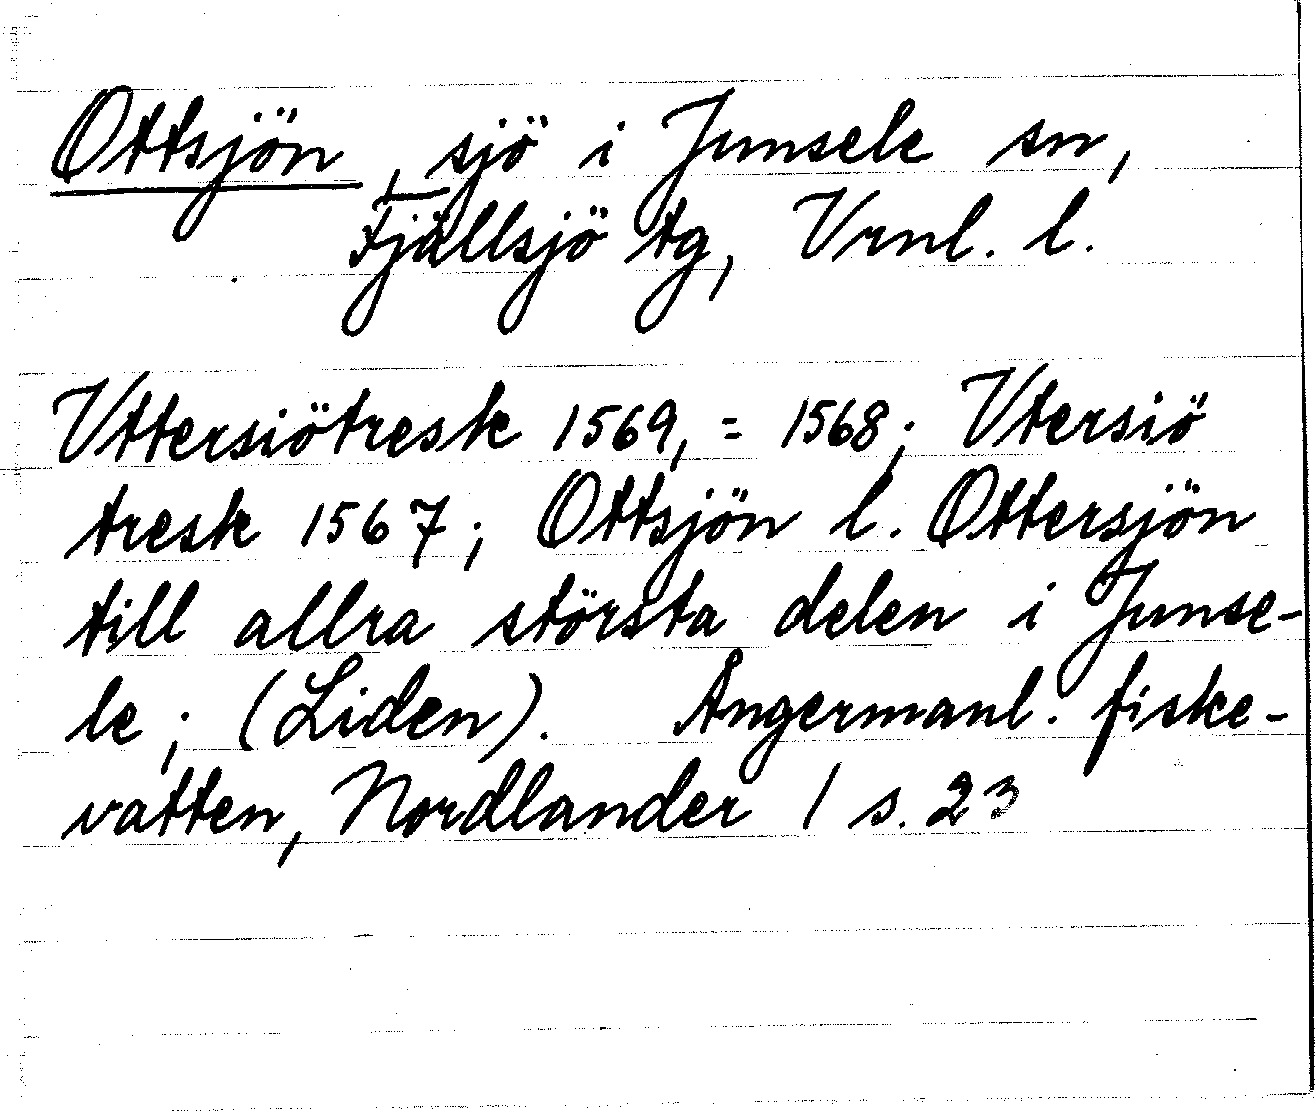 Ottsjön, sjö i Junsele sn,
Fjällsjö tg, Vrnl. l.
Vttersiötresk 1569, = 1568; Vtersiö
tresk 1567; Ottsjön l. Ottersjön
till allra största delen i Junse-
le; (Liden). Ångermanl. fiske-
vatten, Nordlander 1 s. 23